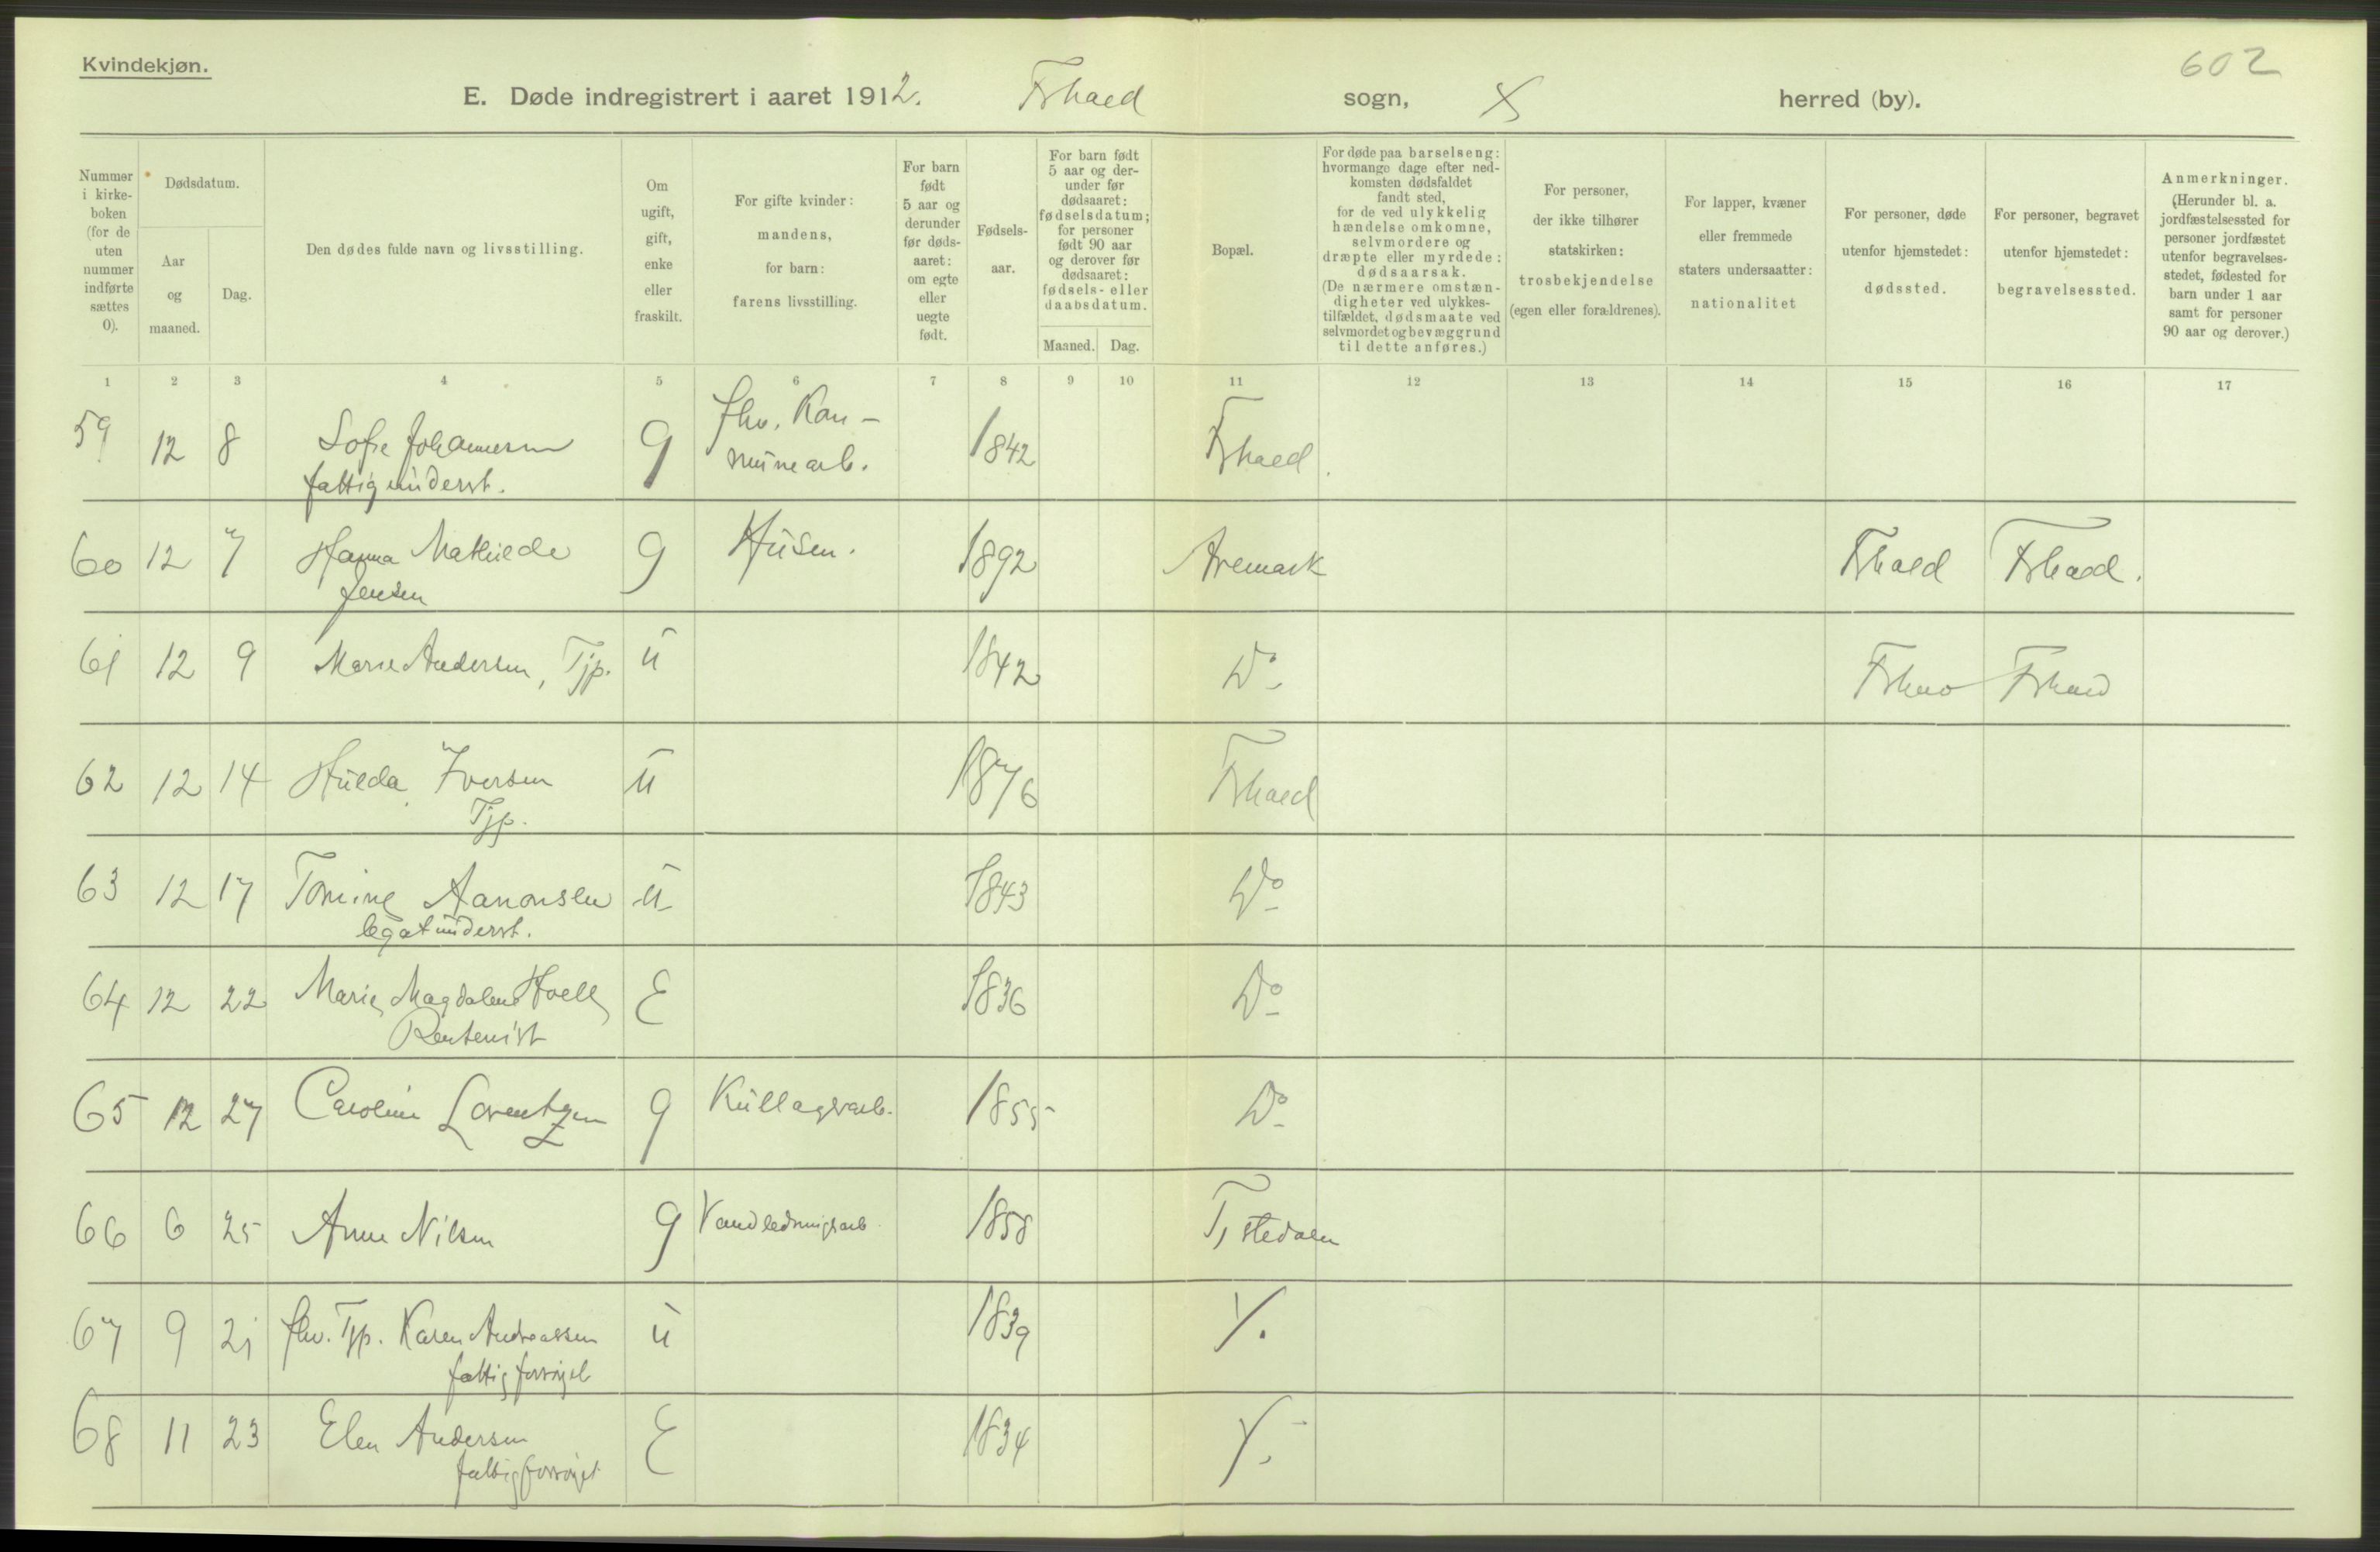 Kvindekjøn.
602
E. Døde indregistrert i aaret 1912. Frhald sogn, herred (by).
Nummer i kirke-boken (for de uten nummer indførte sættes 0).
Dødsdatum.
Aar og maaned.
Dag.
Den dødes fulde navn og livsstilling.
Om ugift, gift, enke eller fraskilt.
For gifte kvinder: mandens, for barn: farens livsstilling.
For barn født 5 aar og derunder før døds-aaret: om egte eller uegte født.
Fødsels-aar.
For barn født 5 aar og der-under før dødsaaret: fødselsdatum; for personer født 90 aar og derover før dødsaaret: fødsels- eller daabsdatum.
Maaned. Dag.
Bopæl.
For døde paa barselseng: hvormange dage efter ned-komsten dødsfaldet fandt sted, for de ved ulykkelig hændelse omkomne, selvmordere og dræpte eller myrdede: dødsaarsak. (De nærmere omstæn-digheter ved ulykkes-tilfældet, dødsmaate ved selvmordet og bevæggrund til dette anføres.)
For personer, der ikke tilhører statskirken: trosbekjendelse (egen eller forældrenes).
For lapper, kvæner eller fremmede staters undersaatter: nationalitet
For personer, døde utenfor hjemstedet: dødssted.
For personer, begravet utenfor hjemstedet: begravelsessted.
Anmerkninger. (Herunder bl. a. jordfæstelsessted for personer jordfæstet utenfor begravelses-stedet, fødested for barn under 1 aar samt for personer 90 aar og derover.)
1 2 3 4 5 6 7 8 9 10 11 12 13 14 15 16 17
59 12 8 Sofie Johannesen g fhv. Kan- 1842 Frhald
fattigunderst. minearb.
60 12 7 Hanna Mathilde g Husm. 1892 Aremark Frhald Frhald.
Jensen
61 12 9 Marie Andersen, Tjp. u 1842 Do Frhald Frhald
62 12 14 Hulda Iversen u 1876 Frhald
Tjp.
63 12 17 Tomine Aanonsen u 1843 Do
legatunderst.
64 12 22 Marie Magdalene E 1836 Do
Rentenist
65 12 27 Caroline Lorentzen g Kullagerarb. 1855 Do
66 6 25 Anne Nilsen g Vandledningsarb 1858 Tistedalen
67 9 21 fhv. Tjp. Karen Andreassen u 1839
fattigforsørget
68 11 23 Elen Andersen E 1834
fattigforsørget